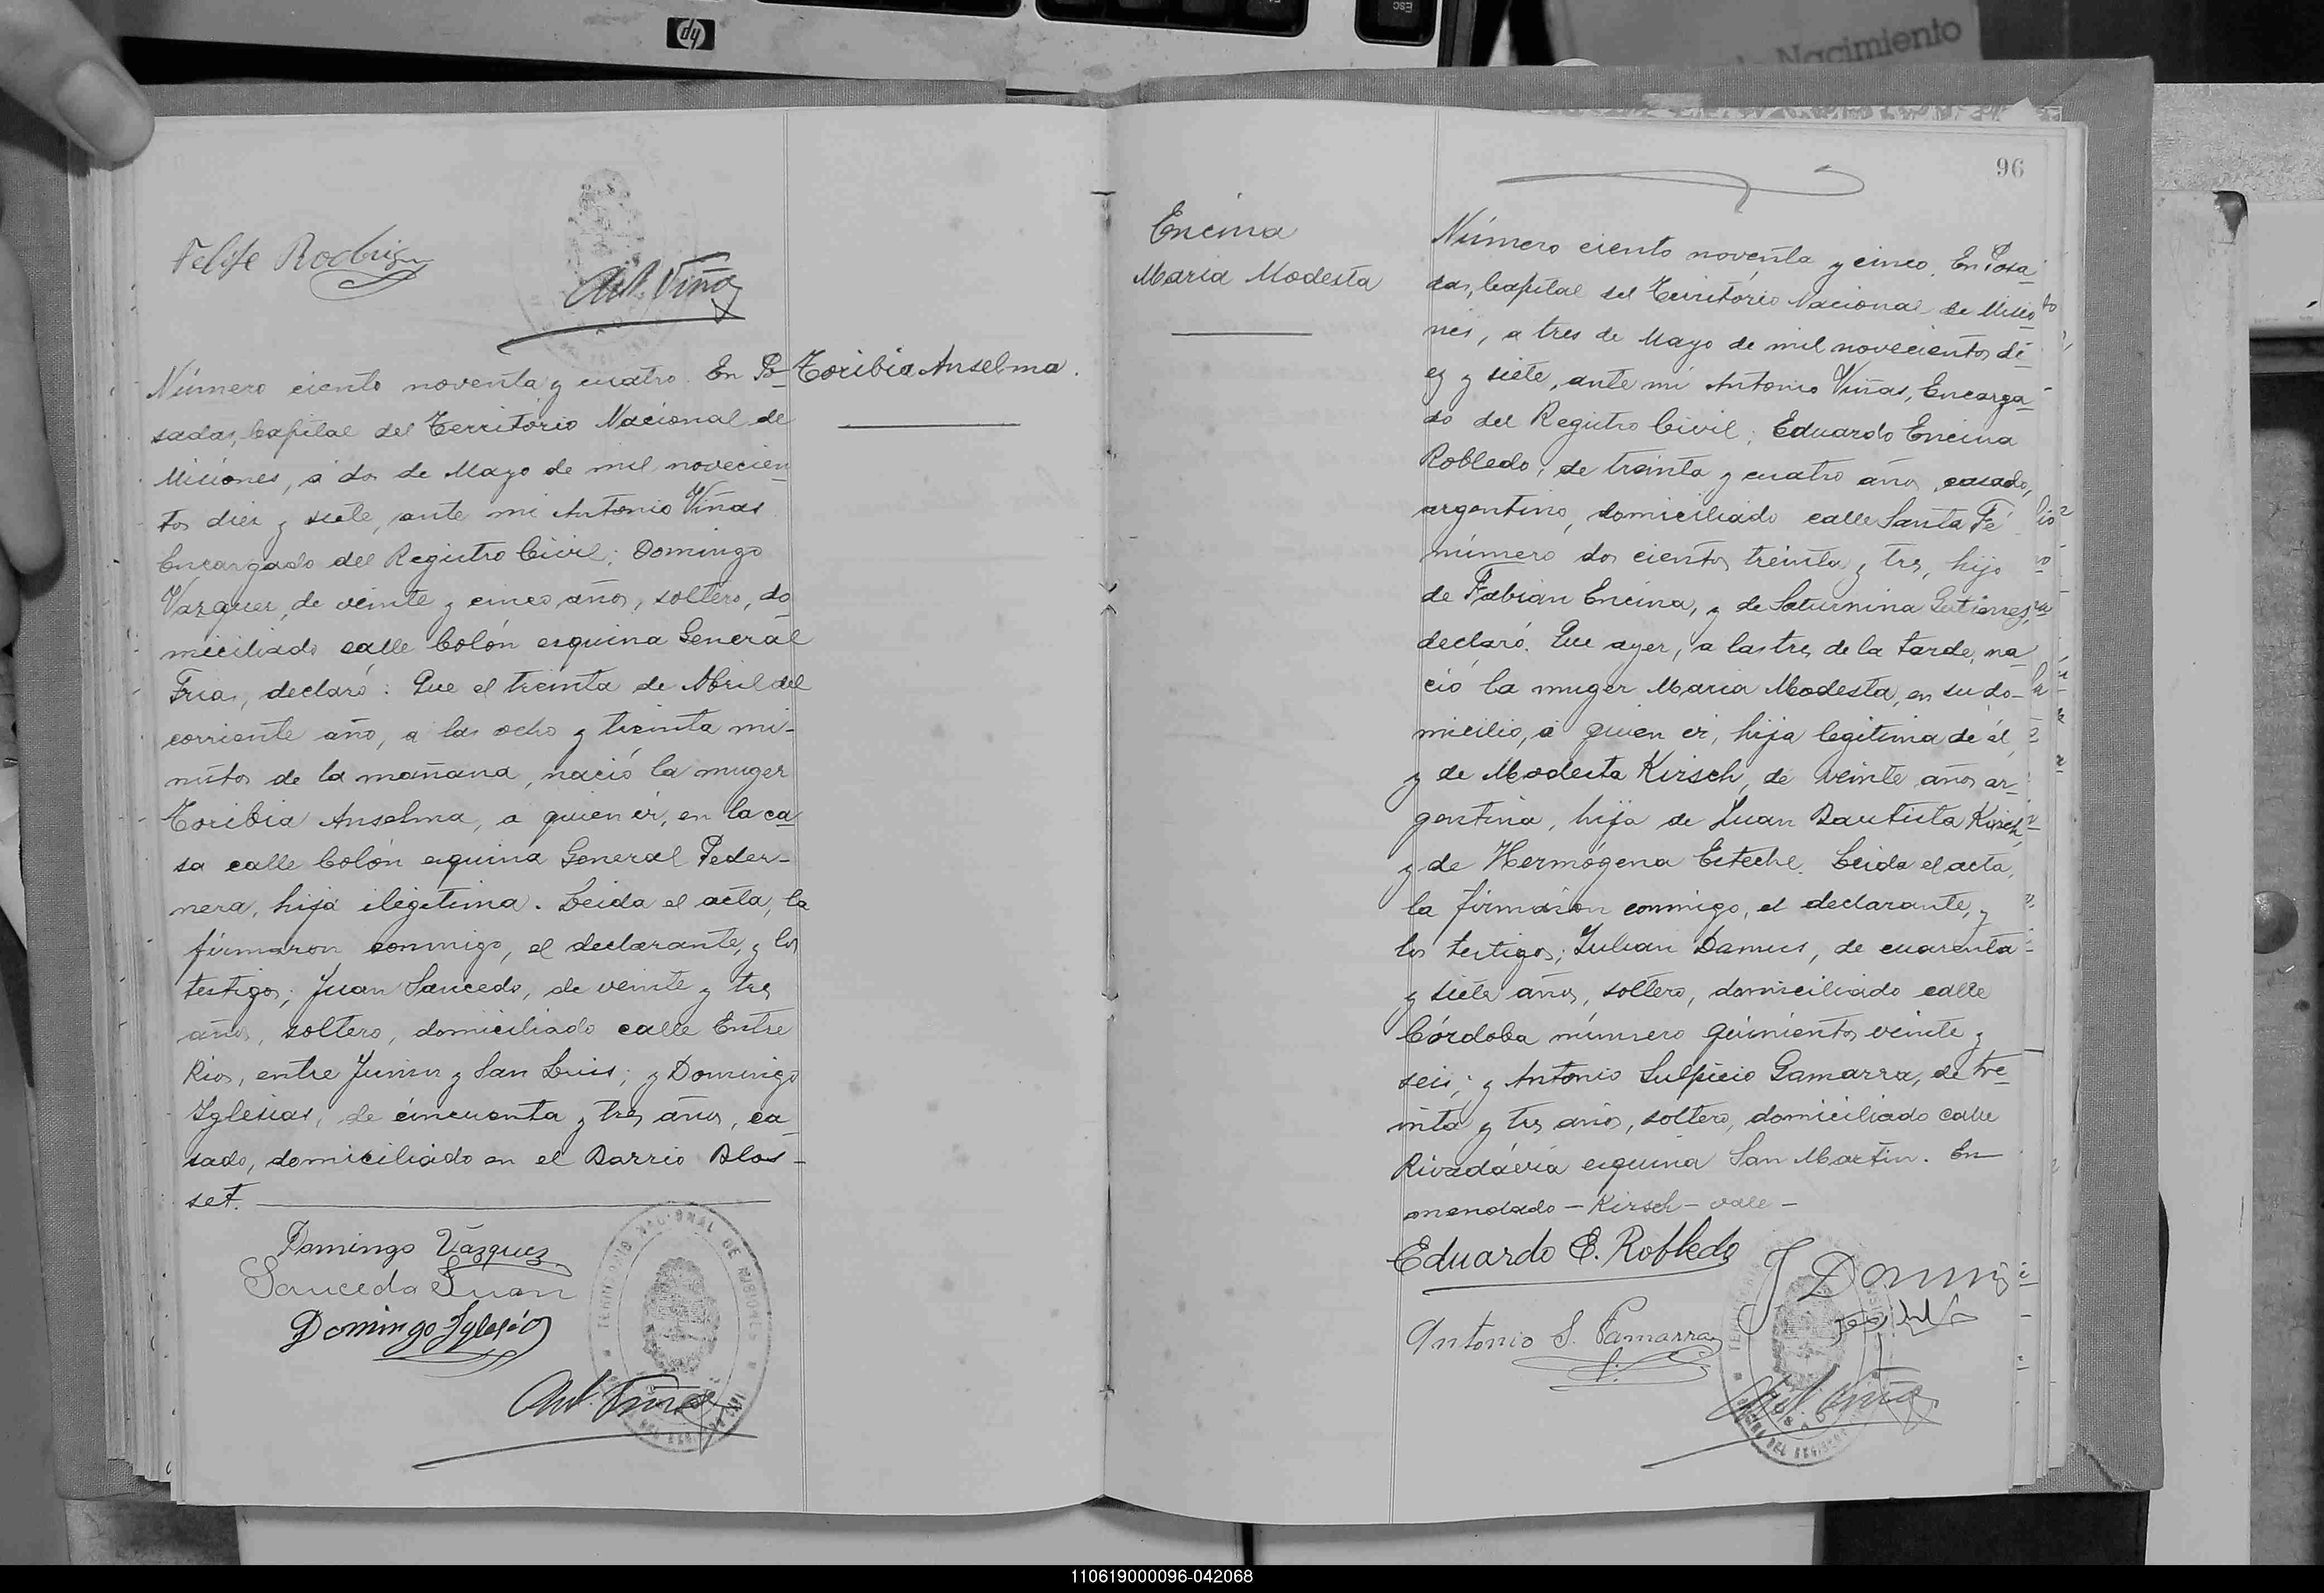 hp
ESC
Nacimiento
Felipe Rodrig
Ant. Viñas
Toribia Anselma.
Número ciento noventa y cuatro. En Po-
sadas, Capital del Territorio Nacional de
Misiones, á dos de Mayo de mil novecien
tos diez y siete, ante mi Antonio Viñas
Encargado del Registro Civil: Domingo
Vazquez, de veinte y cinco años, soltero, do
miciliado calle Colón esquina General
Frias, declaró: Que el treinta de Abril del
corriente año, a las ocho y treinta mi-
nutos de la mañana, nació la muger
Toribia Anselma, a quien vi, en la ca
sa calle Colón esquina General Feder-
nera, hija ilegitima. Leida el acta, la
firmaron conmigo, el declarante, y los
testigos; Juan Saucedo, de veinte y tres
años, soltero, domiciliado calle Entre
Rios, entre Junin y San Luis; y Domingo
Yglesias, de cincuenta y tres años, ca
sado, domiciliado en el Barrio Blos-
set.
Domingo Vázquez
Sauceda Juan
Domingo Yglesias
Ant. Viñas
TERRITORIO NACIONAL DE MISIONES
96
Encina
Maria Modesta
Número ciento noventa y cinco. En Posa
das, Capital del Territorio Nacional de Misio
nes, a tres de Mayo de mil novecientos di
ez y siete, ante mi Antonio Viñas, Encarga
do del Registro Civil; Eduardo Encina
Robledo, de treinta y cuatro años, casado,
argentino, domiciliado calle Santa Fé
número dos cientos treinta y tres, hijo
de Fabian Encina, y de Saturnina Gutierrez,
declaró. Que ayer, a las tres de la tarde, na
ció la muger Maria Modesta, en su do-
micilio, á quien vi, hija legitima de él,
y de Modesta Kirsch, de veinte años ar-
gentina, hija de Juan Bautista Kirsch,
y de Hermógena Esteche. Leida el acta,
la firmaron conmigo, el declarante, y
los testigos; Julian Damus, de cuarenta
y siete años, soltero, domiciliado calle
Córdoba número quinientos veinte y
seis; y Antonio Sulpicio Gamarra, de tre
inta y tres años, soltero, domiciliado calle
Rivadavia esquina San Martin. En
mendado - Kirsch - vale -
Eduardo E. Robledo
Antonio S. Gamarra
Ant. Viñas
110619000096-042068